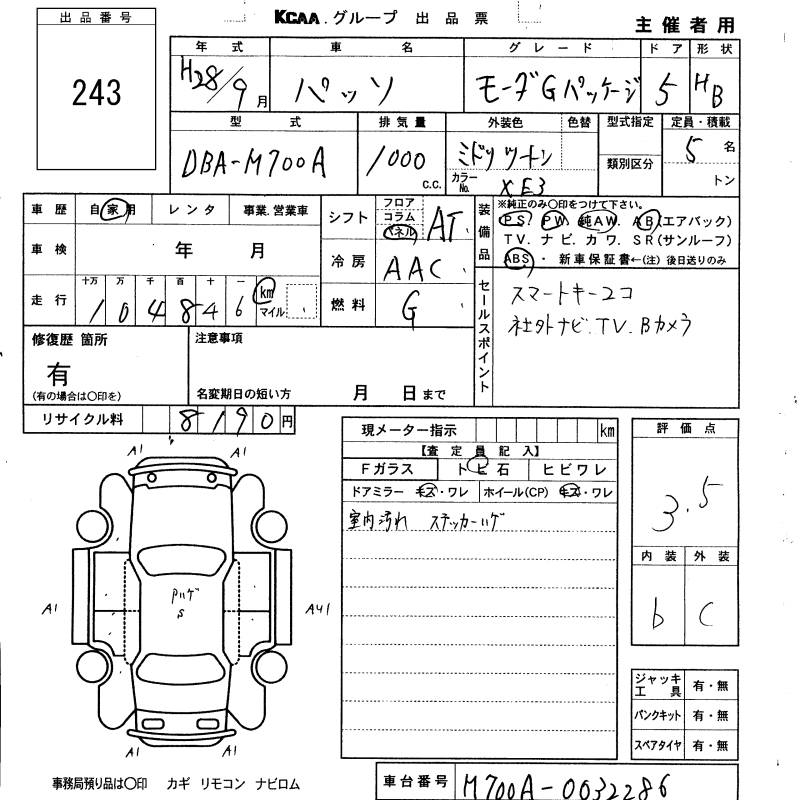 出品番号
243
KCAA.グループ 出品票
主催者用
年式 車名 グレード ドア 形状
H28/9月 パッソ モーダGパッケージ 5 HB
型式 排気量 外装色 色替 型式指定 定員・積載
DBA-M700A 1000 c.c. ミドリツートン 5名
カラーNo. XE3 類別区分 トン
車歴 自家用 レンタ 事業.営業車
車検 年 月
走行 十万 万 千 百 十 一
1 0 4 8 4 6 km マイル
シフト フロア コラム パネル AT
冷房 AAC
燃料 G
装備品 ※純正のみ〇印をつけて下さい。
PS. PW. 純AW. AB(エアバック)
TV. ナビ. カワ. SR(サンルーフ)
ABS・ 新車保証書←(注) 後日送りのみ
セールスポイント
スマートキー2コ
社外ナビ.TV.Bカメラ
修復歴 箇所
有
(有の場合は〇印を)
注意事項
名変期日の短い方 月 日まで
リサイクル料 8190円
現メーター指示 km
【査定員記入】
Fガラス トビ石 ヒビワレ
ドアミラー キズ・ワレ ホイール(CP) キズ・ワレ
室内汚れ ステッカーハゲ
評価点
3.5
内装 外装
b C
A1 A1
A1 A41
Pハゲ
S
A1 A1
ジャッキ工具 有・無
パンクキット 有・無
スペアタイヤ 有・無
事務局預り品は〇印 カギ リモコン ナビロム
車台番号 M700A-0032286